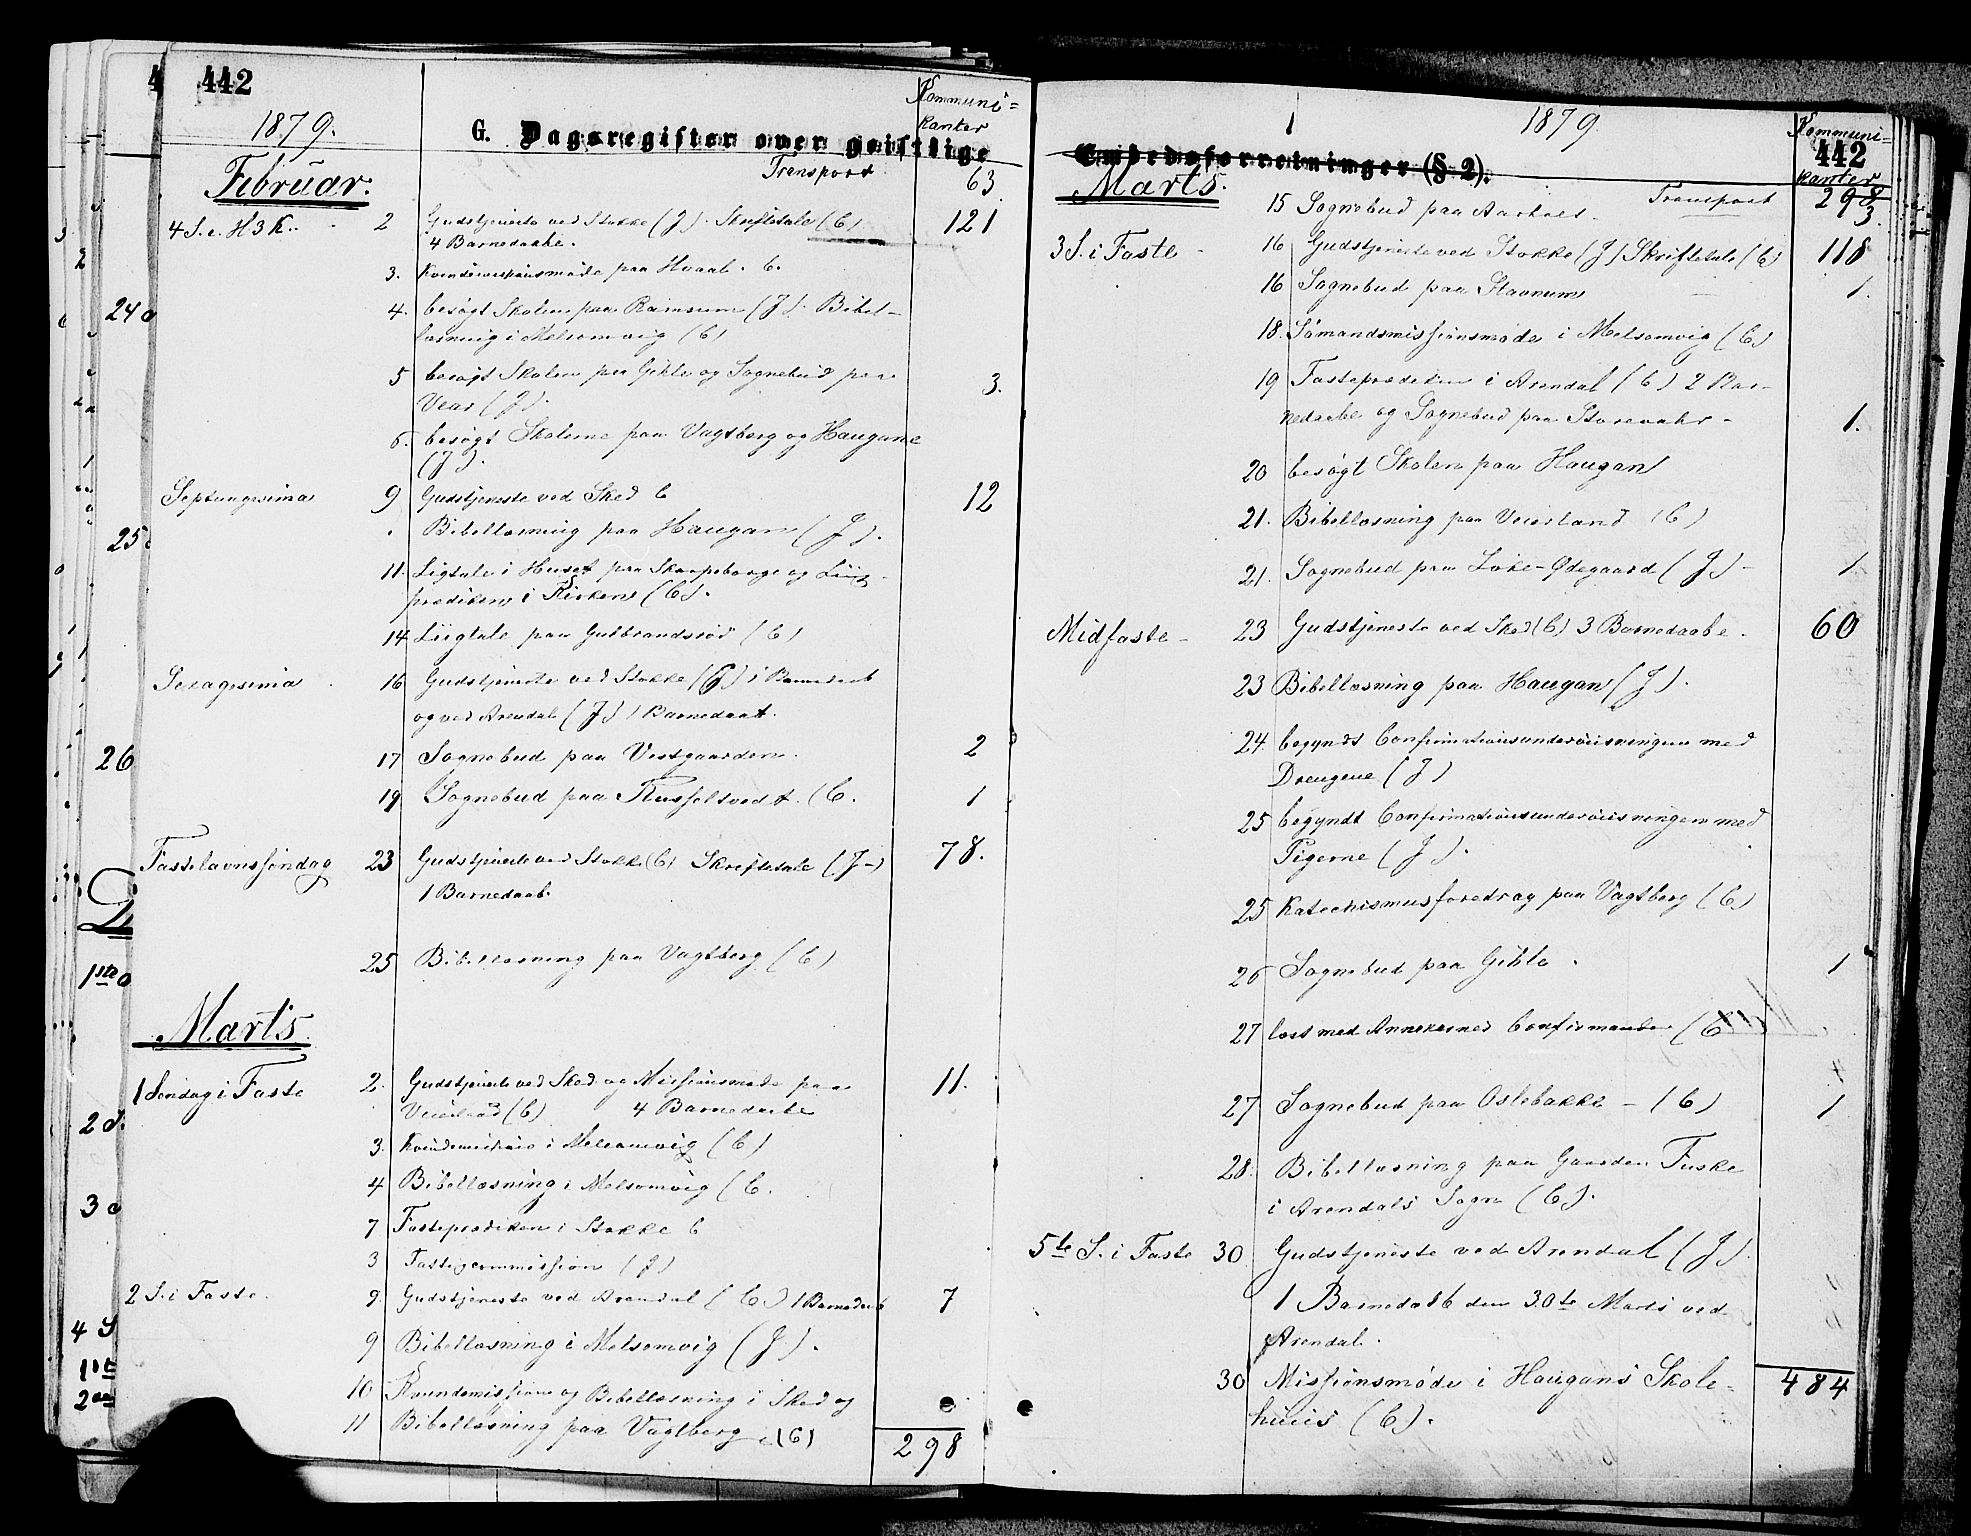 442
1879.
G. Dagsregister over geistlige
Kommuni=
kanter
Februar.
Transport
63.
4 S. e. H3K. 2 Gudstjeneste ved Stokke (J). Skriftetale (C) 121
4 Barnedaabe.
3. Kvindemissionsmøde paa Hvaal. C.
4. besøgt Skolen paa Ramsum (J). Bibel-
læsning i Melsomvig (C)
5 besøgt Skolen paa Gihle og Sognebud paa 3.
Vear (J).
6. besøgt Skolerne paa Vagtberg og Haugane
(J).
Septuagesima 9 Gudstjeneste ved Sked C 12
Bibellæsning paa Haugan (J).
11. Ligtale i Huset paa og Liig-
prædiken i Kirken (C).
14 Liigtale paa Gulbrandsrød (C)
Sexagesima 16 Gudstjeneste ved Stokke (J) 1 Barnedaab
og ved Arendal (J) 1 Barnedaab.
17 Sognebud paa Vestgaarden. 2
19 Sognebud paa (C. 1
Fastelavnssøndag 23 Gudstjeneste ved Stokke (C) Skriftetale (J) 78.
1 Barnedaab.
25 Bibellæsning paa Vagtberg (C)
Marts.
1 Søndag i Faste 2. Gudstjeneste ved Sked og Missionsmøde paa 11.
Veierland (C) 4 Barnedaabe
3. Kvindemission i Melsomvig (C)
4 Bibellæsning i Melsomvig (C.
7 Fasteprædiken i Stokke C
3 (J)
2 S. i Faste. 9. Gudstjeneste ved Arendal (C.) 1 Barnedaab 7
9 Bibellæsning i Melsomvig (J).
10 Kvindemission og Bibellæsning i Sked og
11 Bibellæsning paa Vagtberg (C)
298
1879.
Embedsforretninger (§ 2).
Kommuni-
442
kanter
Marts.
Transport 298
15 Sognebud paa Aarholt. 3.
3 S. i Faste 16 Gudstjeneste ved Stokke (J) Skriftetale (C) 118
16 Sognebud paa Stavnum 1.
18. Sømandsmissionsmøde i Melsomvig (C)
19 Fasteprædiken i Arendal (C) 2 Bar-
nedaabe og Sognebud paa Storevahr 1.
20 besøgt Skolen paa Haugan
21. Bibellæsning paa Veierland (C)
21. Sognebud paa Løke-Ødegaard (J) 1
Midfaste 23 Gudstjeneste ved Sked (C) 3 Barnedaabe. 60
23 Bibellæsning paa Haugan (J).
24 begyndt Confirmationsundervisningen med
Drengene (J)
25 begyndt Confirmationsundervisningen med
Pigerne (J).
25 Katechismusforedrag paa Vagtberg (C)
26 Sognebud paa Gihle. 1
27 læst med Annexernes Confirmander (C
27 Sognebud paa Oslebakke (C) 1
28. Bibellæsning paa Gaarden Fuske
i Arendals Sogn (C).
5te S. i Faste 30 Gudstjeneste ved Arendal (J).
1 Barnedaab den 30te Marts ved
Arendal.
30 Missionsmøde i Haugans Skole-
huus (C).
484